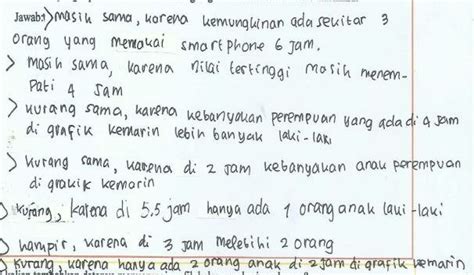 Jawab: > masih sama, karena kemungkinan ada sekitar 3
orang yang memakai smartphone 6 jam.
> masih sama, karena nilai tertinggi masih menem-
pati 4 jam
> kurang sama, karena kebanyakan perempuan yang ada di 4 jam
di grafik kemarin lebih banyak laki-laki
> kurang sama, karena di 2 jam kebanyakan anak perempuan
di grakik kemarin
> kurang, karena di 5.5 jam hanya ada 1 orang anak laki-laki
> hampir, karena di 3 jam melebihi 2 orang
> kurang, karena hanya ada 2 orang anak di 2 jam di grafik kemarin